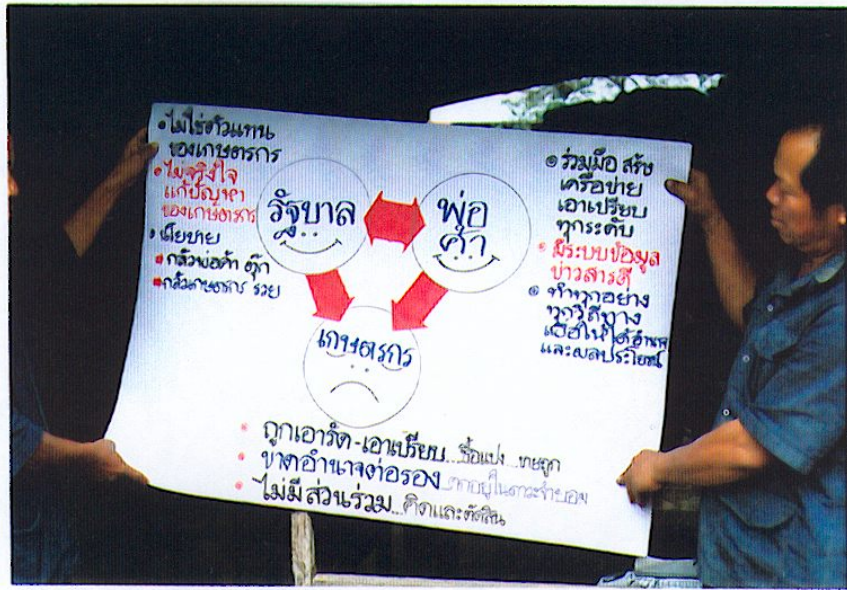 •ไม่ใช่ตัวแทน
ของเกษตรกร
•ไม่จริงใจ
แก้ปัญหา
ของเกษตรกร
•นโยบาย
•กลัวพ่อค้า ตุ๊ก
•กลัวเกษตรกร รวย
รัฐบาล
พ่อ
ค้า
เกษตรกร
• ร่วมมือ สร้าง
เครือข่าย
เอาเปรียบ
ทุกระดับ
• มีระบบข้อมูล
ข่าวสารดี
• ทำทุกอย่าง
ทุกวิถีทาง
เพื่อให้ได้อำนาจ
และผลประโยชน์
• ถูกเอารัด-เอาเปรียบ...ซื้อแพง...ขายถูก
• ขาดอำนาจต่อรอง...ตกอยู่ในภาวะจำยอม
• ไม่มีส่วนร่วม...คิดและตัดสิน